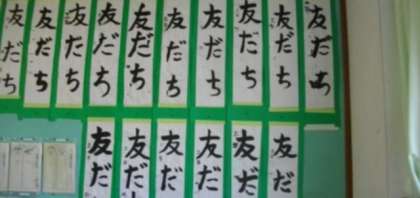 友だち
友だち
友だち
友だち
友だち
友だち
友だち
友だち
友だち
友だち
友だ
友だ
友だ
友だ
友だ
友だ